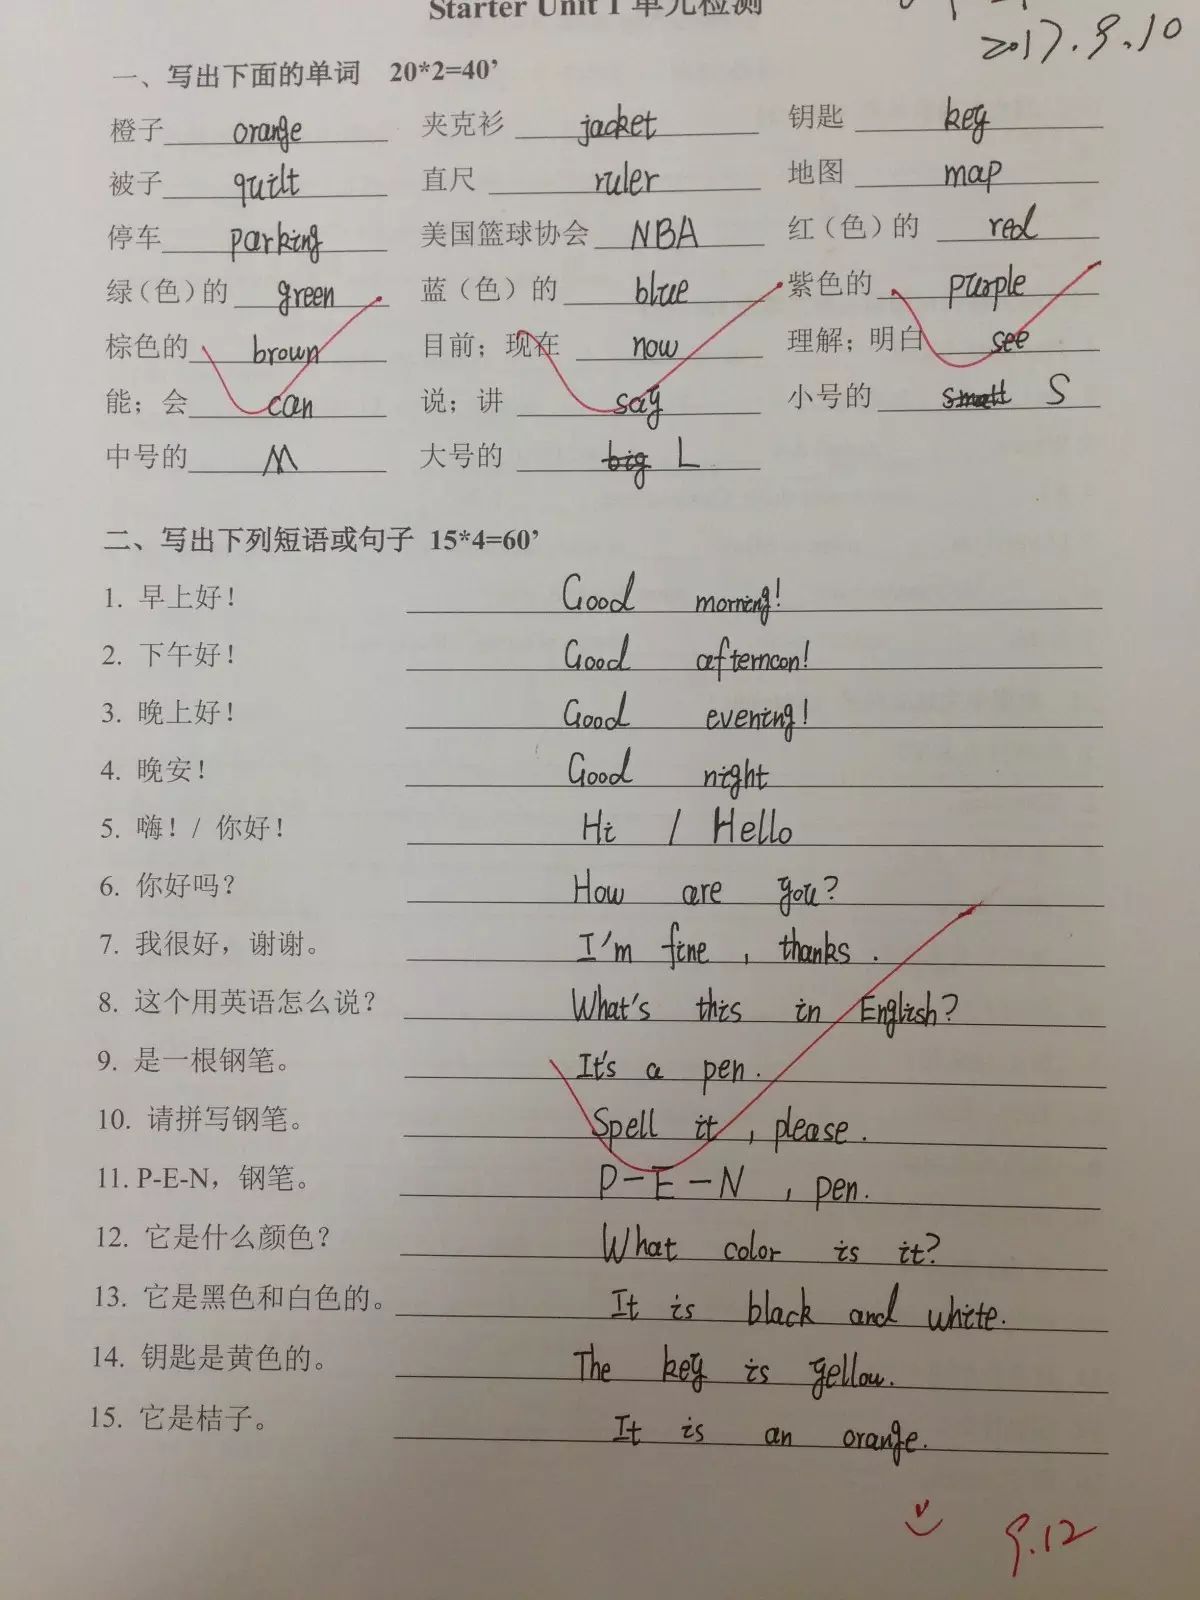 Starter Unit 1 单元检测
2017.9.10
一、写出下面的单词 20*2=40’
橙子 orange 夹克衫 jacket 钥匙 key
被子 quilt 直尺 ruler 地图 map
停车 parking 美国篮球协会 NBA 红（色）的 red
绿（色）的 green 蓝（色）的 blue 紫色的 purple
棕色的 brown 目前；现在 now 理解；明白 see
能；会 can 说；讲 say 小号的 small S
中号的 M 大号的 big L
二、写出下列短语或句子 15*4=60’
1. 早上好！ Good morning!
2. 下午好！ Good afternoon!
3. 晚上好！ Good evening!
4. 晚安！ Good night
5. 嗨！/ 你好！ Hi / Hello
6. 你好吗？ How are you?
7. 我很好，谢谢。 I'm fine, thanks.
8. 这个用英语怎么说？ What's this in English?
9. 是一根钢笔。 It's a pen.
10. 请拼写钢笔。 Spell it, please.
11. P-E-N，钢笔。 P-E-N, pen.
12. 它是什么颜色？ What color is it?
13. 它是黑色和白色的。 It is black and white.
14. 钥匙是黄色的。 The key is yellow.
15. 它是桔子。 It is an orange.
9.12